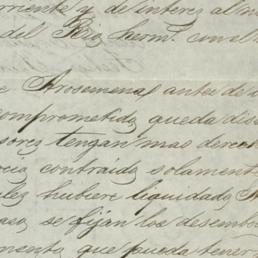 rriente y de interes al m
del Rio herm.º con el
e Arosemena antes de
comprometida queda dis
sores tengan mas derec
contraida solament
les hubiere liquidado
se fijan los desemb
menta que pueda tener